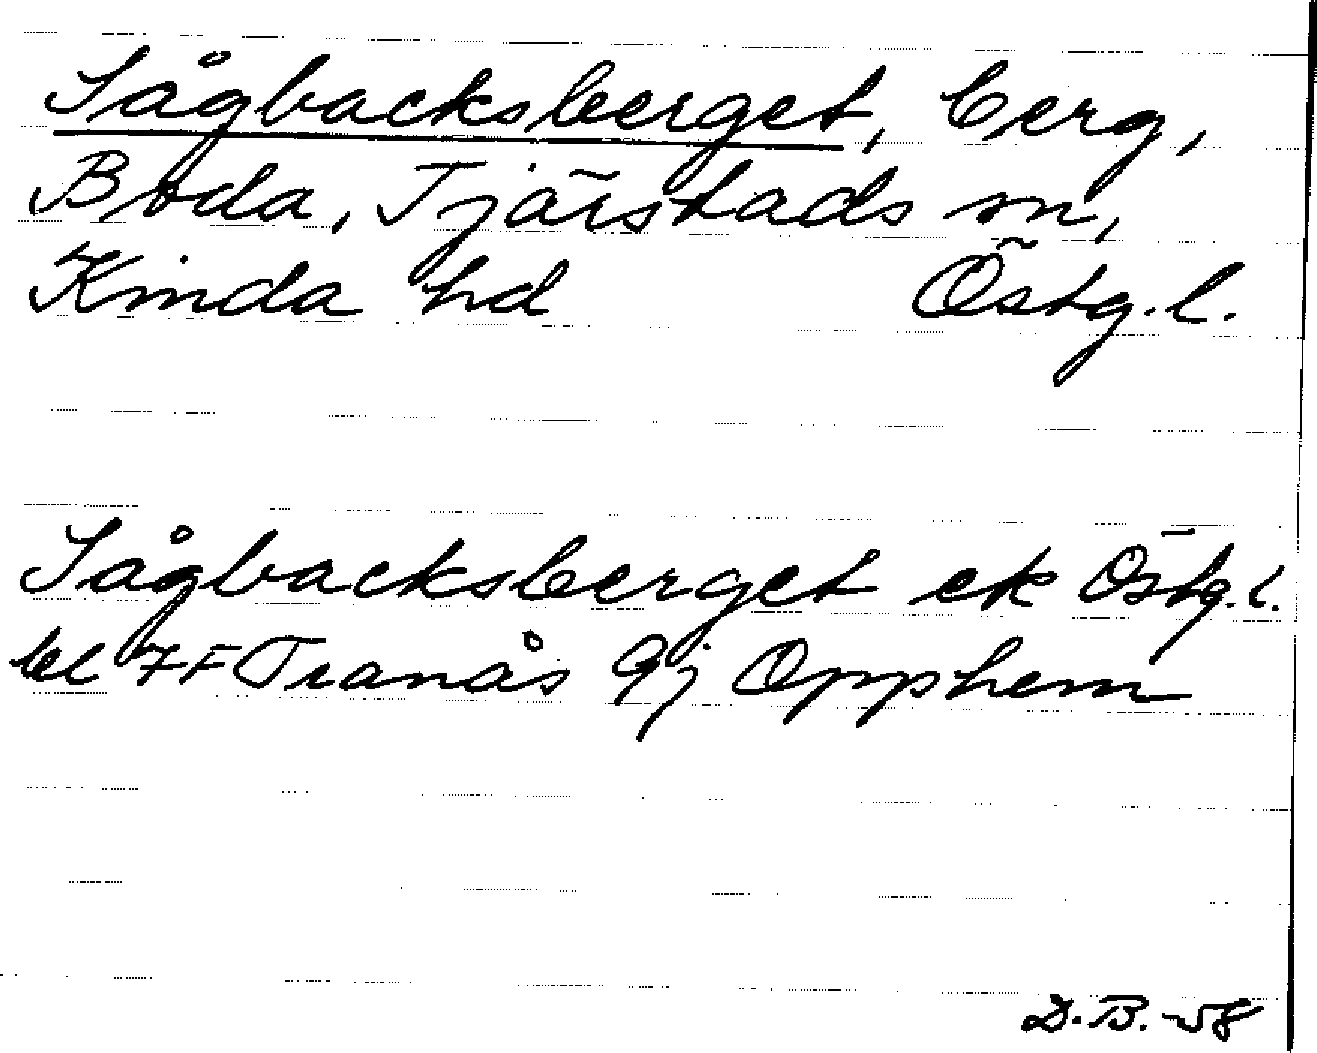 Sågbacksberget, berg,
Boda, Tjärstads sn,
Kinda hd Östg.l.
Sågbacksberget ek Östg.l.
bl 7F Tranås 9j Opphem
D.B. -58